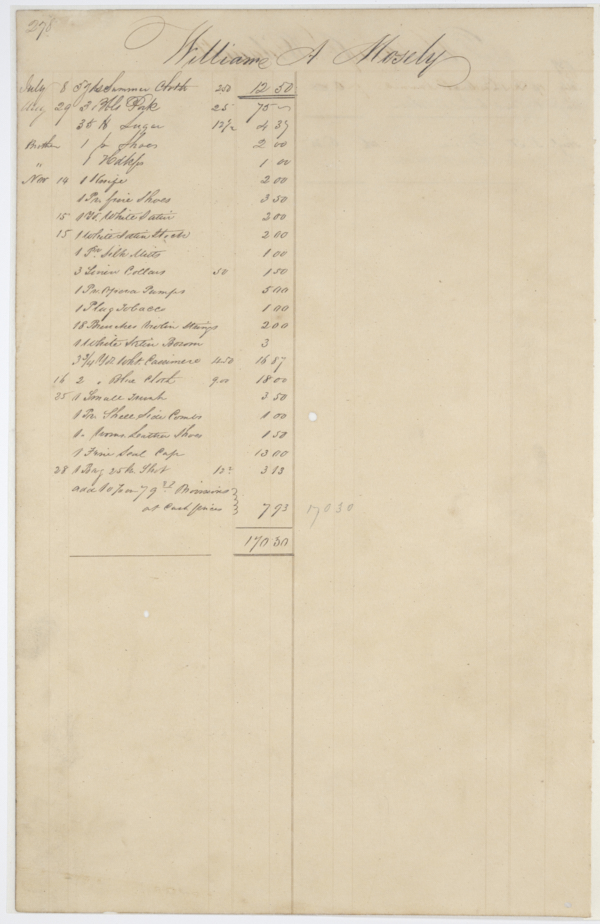 278
William A Mosely
July 8 5 yds Summer Cloth 250 12 50
Aug 29 3 25 75
35 lb Sugar 12½ 4 37
Brother 1 pr Shoes 2 00
" 1 Hdkfs 1 00
Nov 14 1 Knife 2 00
1 Pr. fine Shoes 3 50
15 White Satin 2 00
15 1 White Satin Stock 2 00
1 Pr. Silk Mitts 1 00
3 Linen Collars 50 1 50
1 Pr. Opera Pumps 5 00
1 Plug Tobacco 1 00
18 Bunches Violin Strings 2 00
1 White Satin Bosom 3
3¾ Yds Cassimere 450 16 87
16 2 " Blue Cloth 900 18 00
25 1 Small Trunk 3 50
1 Pr. Shell Side Combs 1 00
1 " Leather Shoes 1 50
1 Fine Seal Cap 13 00
28 1 Bag 25 lb Shot 12½ 3 13
add 10 7 93
at Cash prices 7 93 170 30
170 30